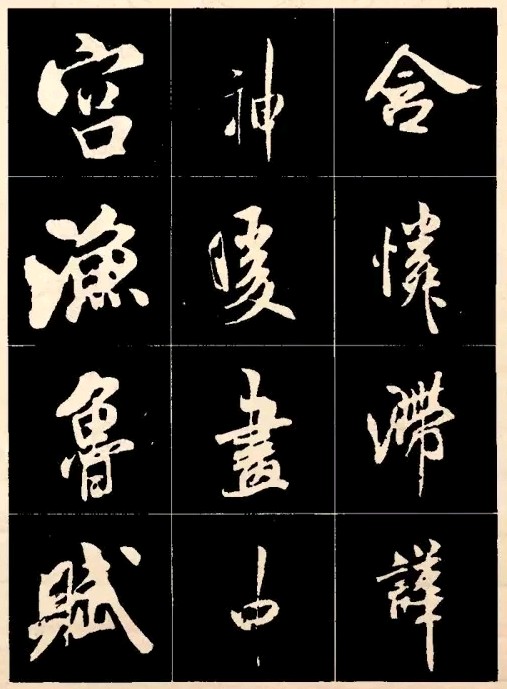 含憐滯譁
神暖畫中
宮漁魯賦